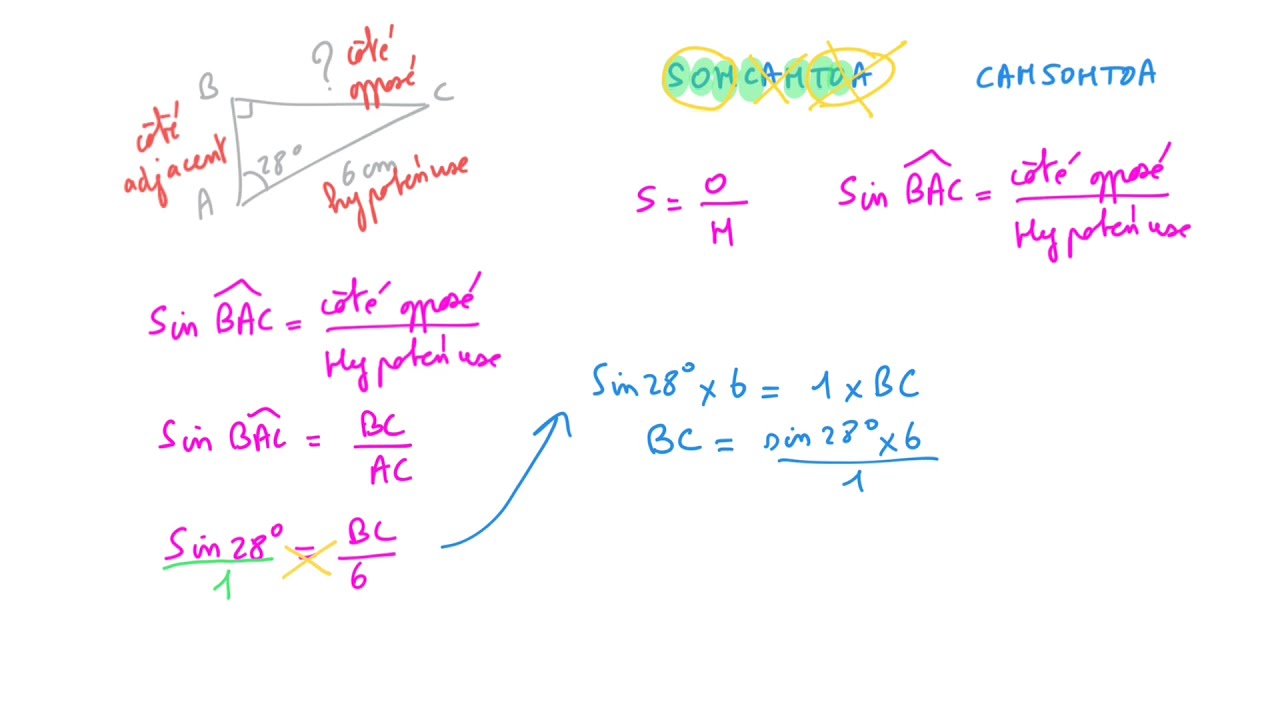 B
?
côté
opposé
C
côté
adjacent
28°
A
6 cm
hypoténuse
SOHCAHTOA
CAHSOHTOA
S = O/H
Sin BAC = côté opposé / Hypoténuse
Sin BAC = côté opposé / Hypoténuse
Sin BAC = BC/AC
Sin 28°/1 = BC/6
Sin 28° x 6 = 1 x BC
BC = sin 28° x 6 / 1